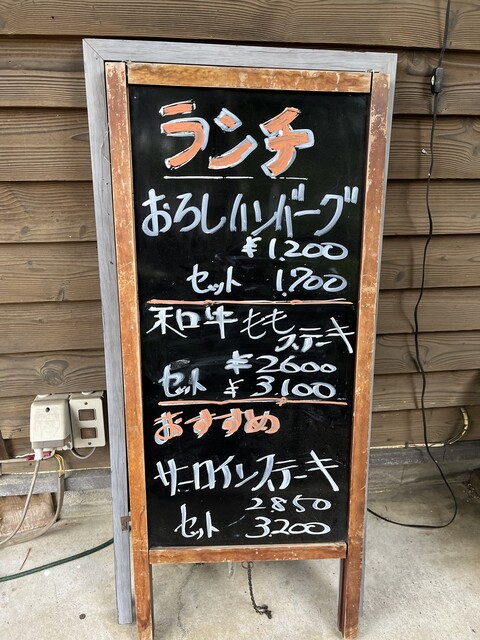 ランチ
おろしハンバーグ
¥1,200
セット 1,700
和牛ももステーキ
¥2600
セット ¥3,100
おすすめ
サーロインステーキ
2850
セット 3,200